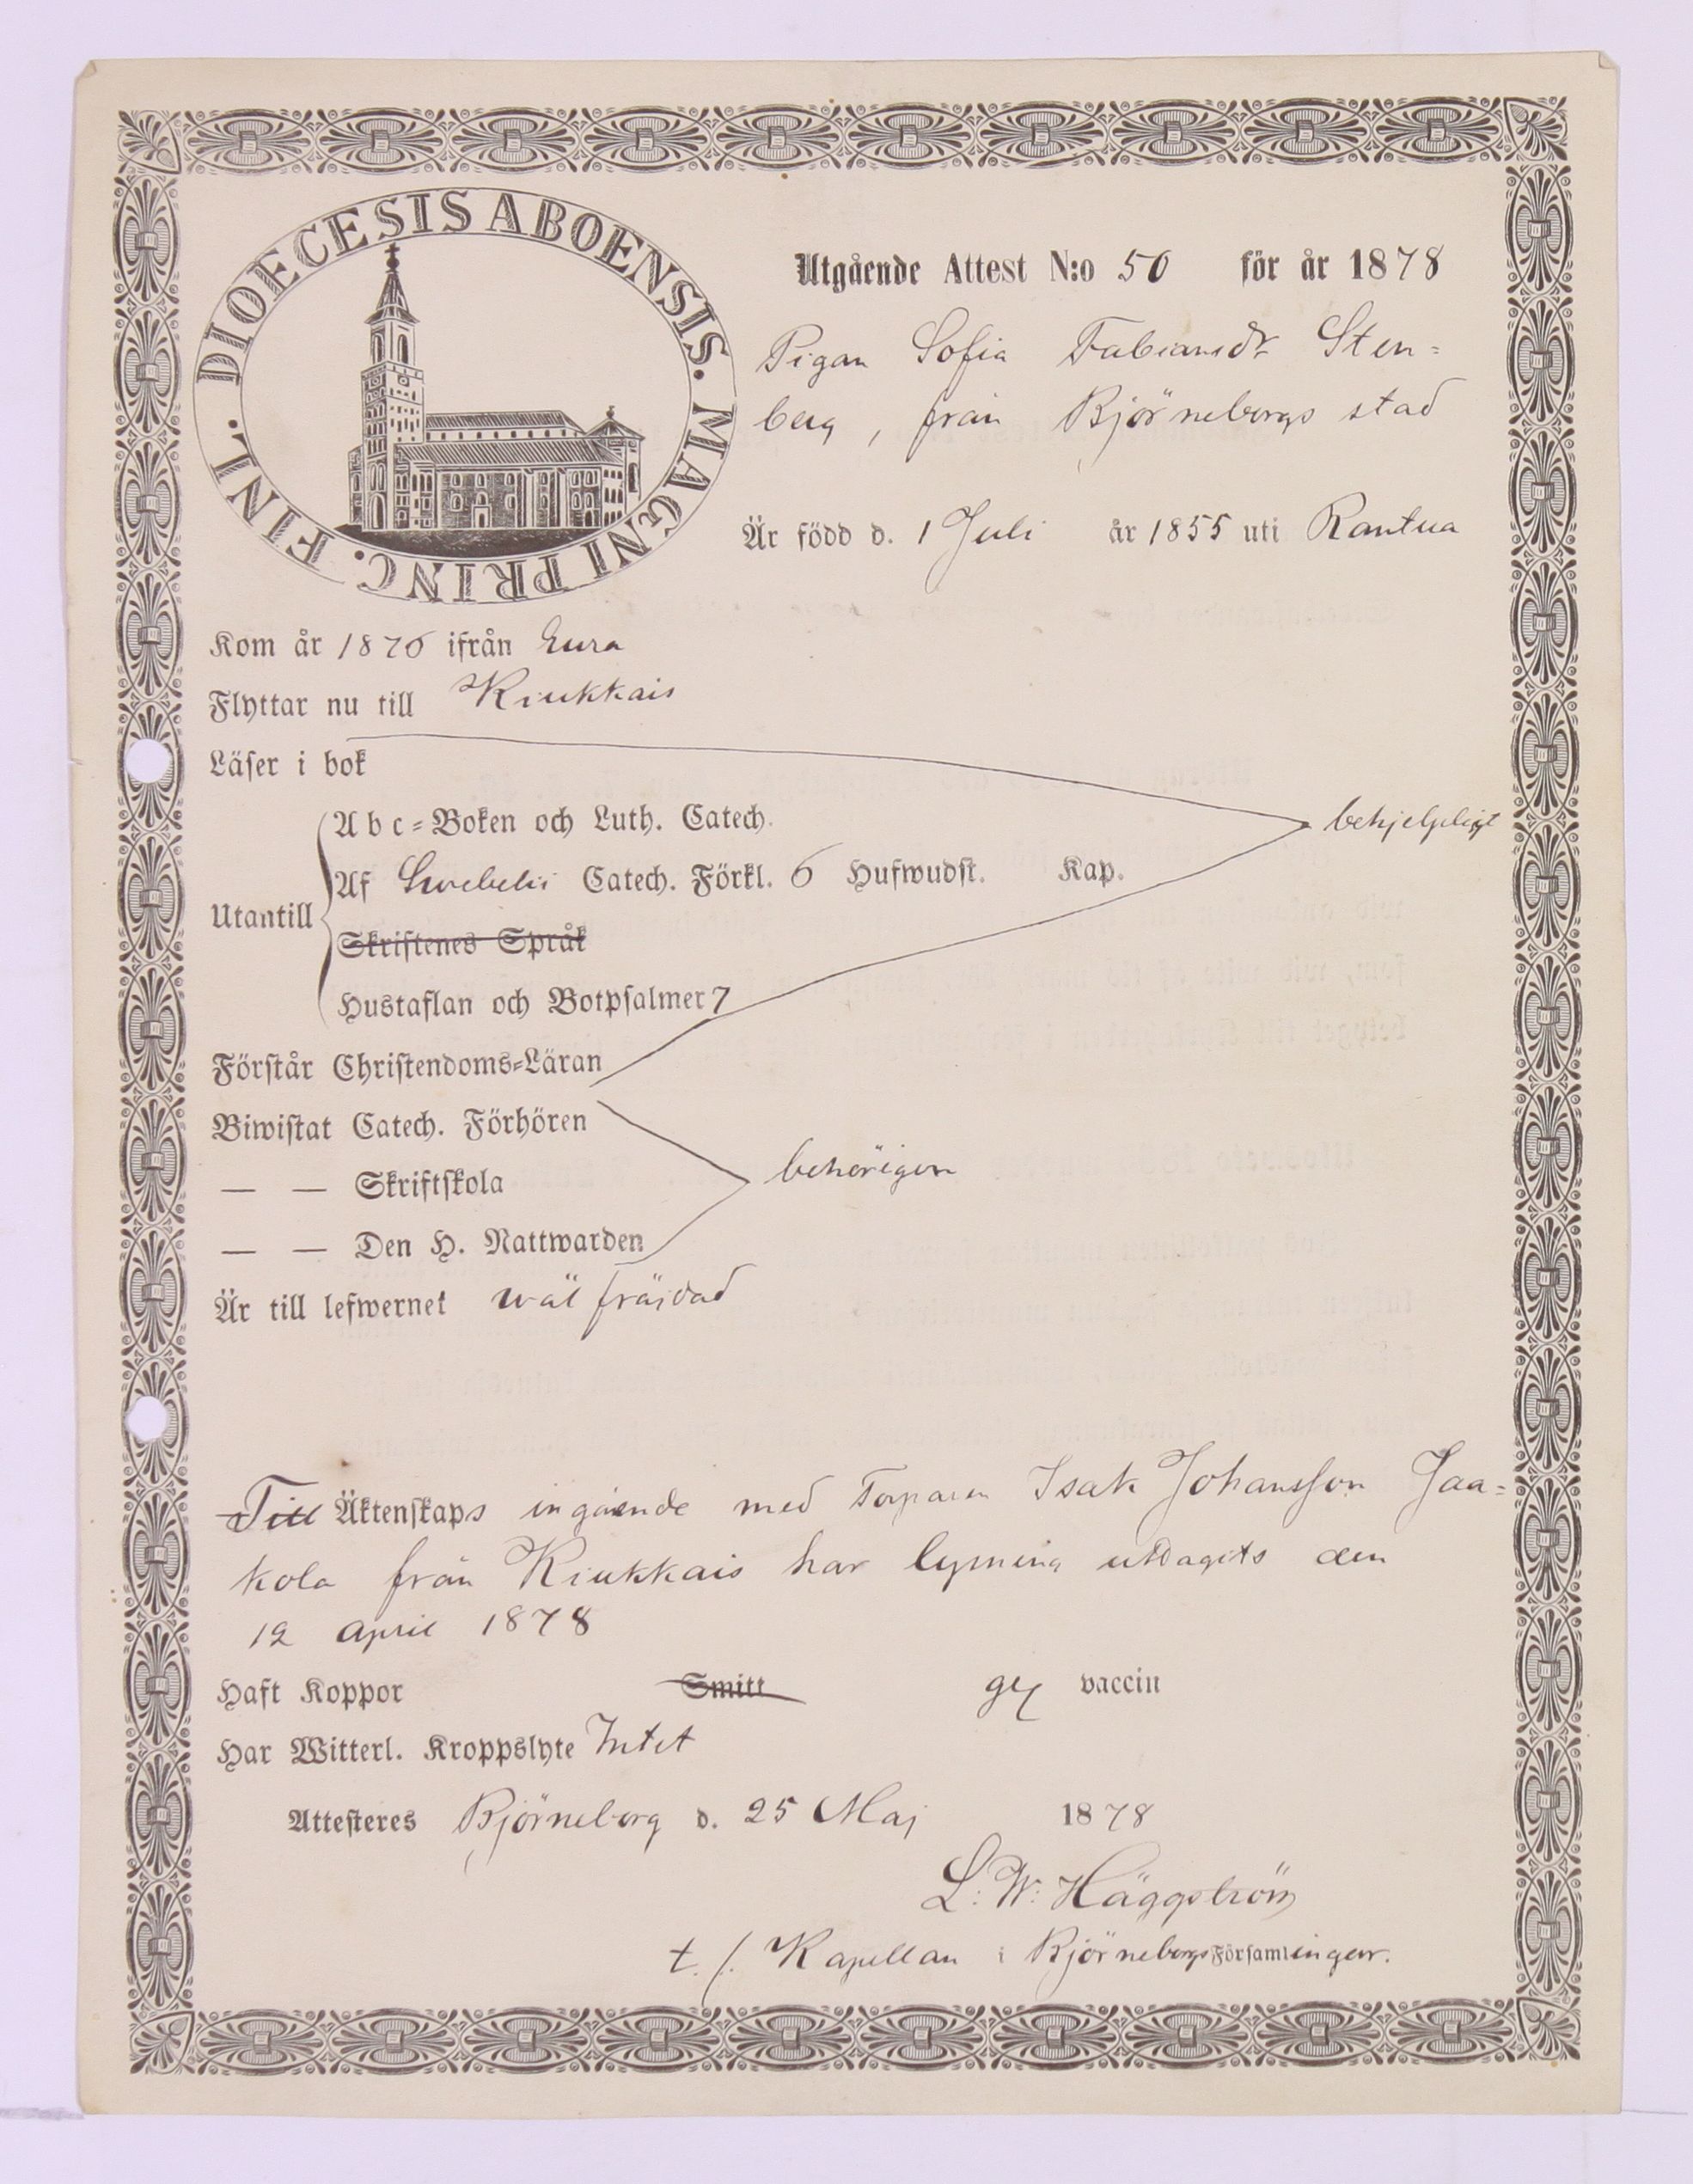 DIOECESIS ABOENSIS. MAGNI PRINC. FINL.
Utgående Attest N:o 50 för år 1878
Pigan Sofia Fabiansdr Sten=
berg, från Björneborgs stad
Är född d. 1 Juli år 1855 uti Rantua
Kom år 1876 ifrån Eura
Flyttar nu till Kiukkais
Läser i bok
Abc=Boken och Luth. Catech.
behjelpligt
Utantill
Af Swebelii Catech. Förkl. 6 Hufwudst. Kap.
Skriftenes Språk
Hustaflan och Botpsalmer 7
Förstår Christendoms=Läran
Biwistat Catech. Förhören
— — Skriftskola
behörigen
— — Den H. Nattwarden
Är till lefwernet wäl fräjdad
Till Äktenskaps ingående med Torparen Isak Johansson Jaa=
kola från Kiukkais har lysning uttagits den
12 april 1878
Haft Koppor Smitt vaccin
Har Witterl. Kroppslyte Intet
Attesteres Björneborg d. 25 Maj 1878
L: W: Häggström
t. f. Kapellan i Björneborgs Församlingar.